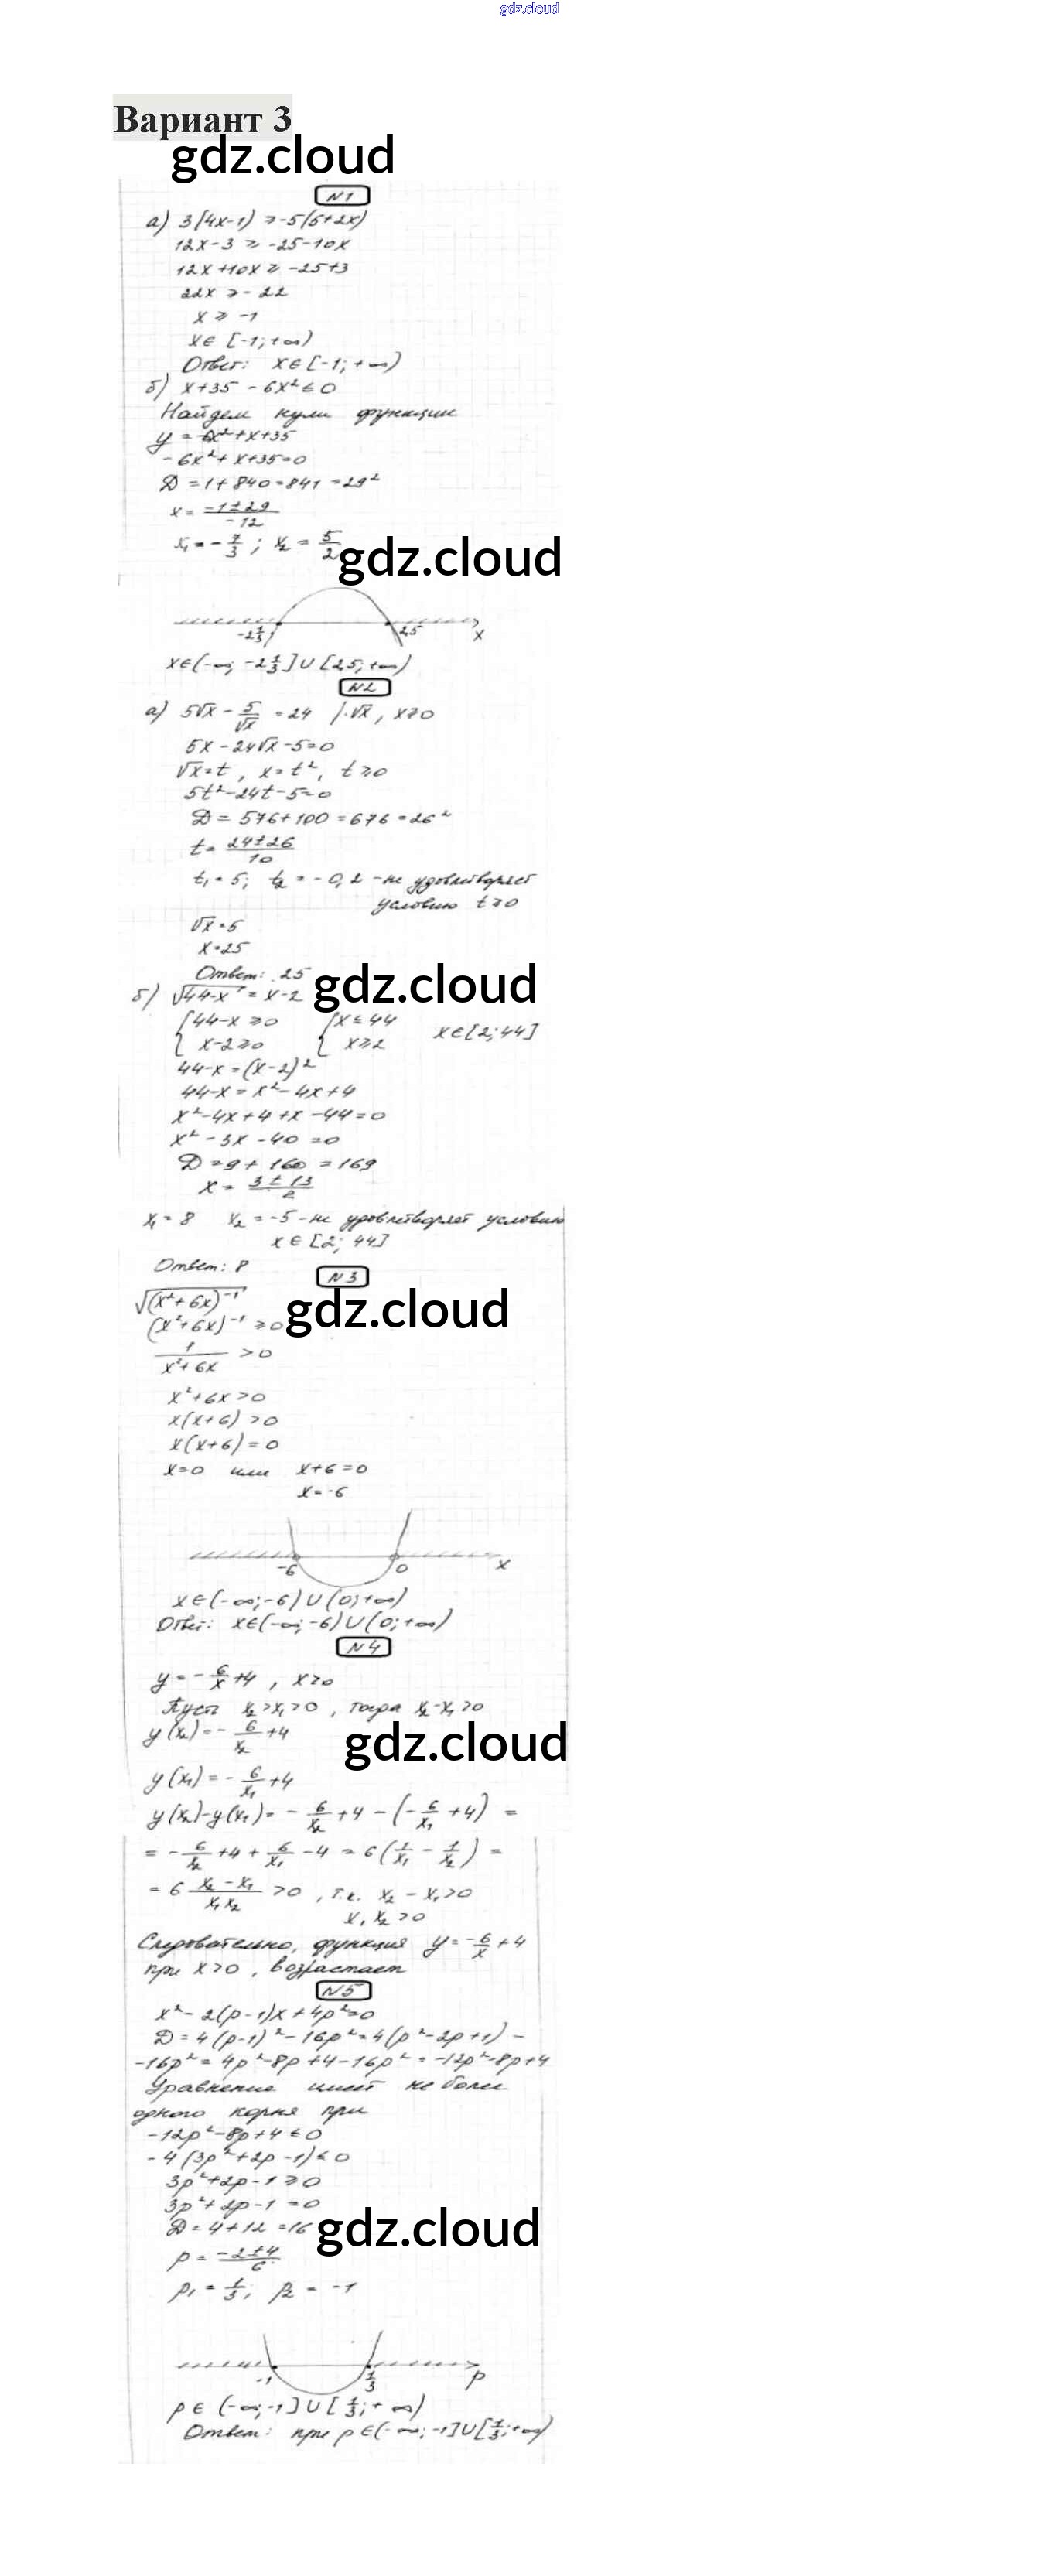 gdz.cloud
Вариант 3
gdz.cloud
N1
а) 3(4x-1) ≥ -5(5+2x)
12x-3 ≥ -25-10x
12x+10x ≥ -25+3
22x ≥ -22
x ≥ -1
x∈[-1;+∞)
Ответ: x∈[-1;+∞)
б) x+35-6x²≤0
Найдем нули функции
y=-6x²+x+35
-6x²+x+35=0
D=1+840=841=29²
x=(-1±29)/-12
x₁=-7/3; x₂=5/2
gdz.cloud
-2 1/3 2,5 x
x∈(-∞;-2 1/3]∪[2,5;+∞)
N2
а) 5√x - 5/√x = 24 |·√x, x≥0
5x-24√x-5=0
√x=t, x=t², t≥0
5t²-24t-5=0
D=576+100=676=26²
t=(24±26)/10
t₁=5; t₂=-0,2 - не удовлетворяет
условию t≥0
√x=5
x=25
Ответ: 25
gdz.cloud
б) √(44-x) = x-2
{44-x≥0 {x≤44 x∈[2;44]
{x-2≥0 {x≥2
44-x=(x-2)²
44-x=x²-4x+4
x²-4x+4+x-44=0
x²-3x-40=0
D=9+160=169
x=(3±13)/2
x₁=8 x₂=-5 - не удовлетворяет условию
x∈[2;44]
Ответ: 8
N3
√((x²+6x)⁻¹)
gdz.cloud
(x²+6x)⁻¹≥0
1/(x²+6x) >0
x²+6x>0
x(x+6)>0
x(x+6)=0
x=0 или x+6=0
x=-6
-6 0 x
x∈(-∞;-6)∪(0;+∞)
Ответ: x∈(-∞;-6)∪(0;+∞)
N4
y=-6/x+4, x>0
Пусть x₂>x₁>0, тогда x₂-x₁>0
y(x₂)=-6/x₂+4
gdz.cloud
y(x₁)=-6/x₁+4
y(x₂)-y(x₁)=-6/x₂+4-(-6/x₁+4)=
=-6/x₂+4+6/x₁-4=6(1/x₁-1/x₂)=
=6 (x₂-x₁)/(x₁x₂) >0, т.к. x₂-x₁>0
x₁x₂>0
Следовательно, функция y=-6/x+4
при x>0, возрастает
N5
x²-2(p-1)x+4p²=0
D=4(p-1)²-16p²=4(p²-2p+1)-
-16p²=4p²-8p+4-16p²=-12p²-8p+4
Уравнение имеет не более
одного корня при
-12p²-8p+4≤0
-4(3p²+2p-1)≤0
3p²+2p-1≥0
3p²+2p-1=0
D=4+12=16
gdz.cloud
p=(-2±4)/6
p₁=1/3; p₂=-1
-1 1/3 p
p∈(-∞;-1]∪[1/3;+∞)
Ответ: при p∈(-∞;-1]∪[1/3;+∞)